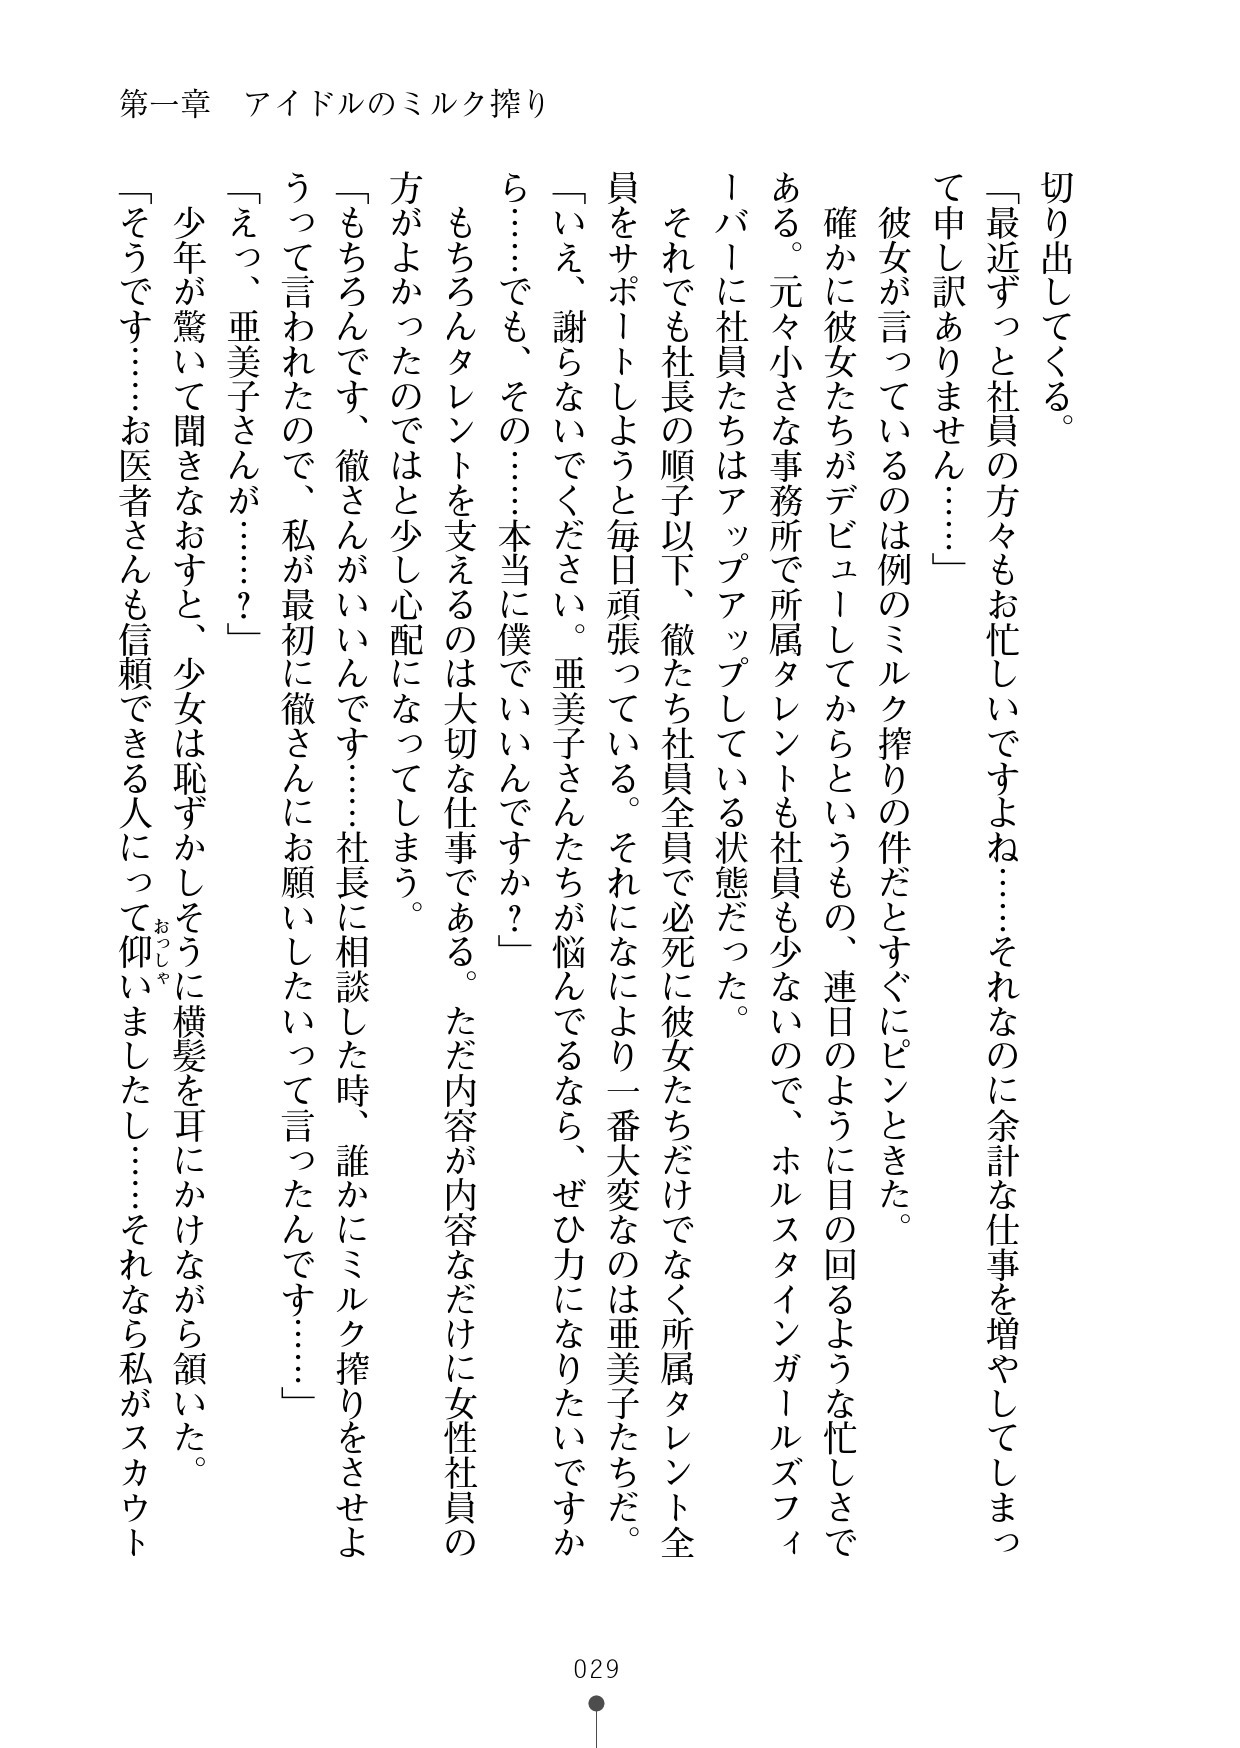 第一章　アイドルのミルク搾り
切り出してくる。
「最近ずっと社員の方々もお忙しいですよね……それなのに余計な仕事を増やしてしまっ
て申し訳ありません……」
彼女が言っているのは例のミルク搾りの件だとすぐにピンときた。
確かに彼女たちがデビューしてからというもの、連日のように目の回るような忙しさで
ある。元々小さな事務所で所属タレントも社員も少ないので、ホルスタインガールズフィ
ーバーに社員たちはアップアップしている状態だった。
それでも社長の順子以下、徹たち社員全員で必死に彼女たちだけでなく所属タレント全
員をサポートしようと毎日頑張っている。それになにより一番大変なのは亜美子たちだ。
「いえ、謝らないでください。亜美子さんたちが悩んでるなら、ぜひ力になりたいですか
ら……でも、その……本当に僕でいいんですか？」
もちろんタレントを支えるのは大切な仕事である。ただ内容が内容なだけに女性社員の
方がよかったのではと少し心配になってしまう。
「もちろんです、徹さんがいいんです……社長に相談した時、誰かにミルク搾りをさせよ
うって言われたので、私が最初に徹さんにお願いしたいって言ったんです……」
「えっ、亜美子さんが……？」
少年が驚いて聞きなおすと、少女は恥ずかしそうに横髪を耳にかけながら頷いた。
「そうです……お医者さんも信頼できる人にって仰いましたし……それなら私がスカウト
おっしゃ
029